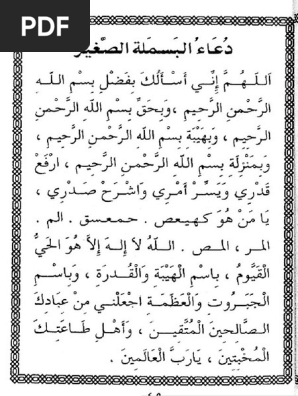 PDF
دُعَاءُ الْبَسْمَلَة الصَّغِيْر
اَللَّهُمَّ إِنِّي أَسْأَلُكَ بِفَضْلِ بِسْمِ اللَّهِ
الرَّحْمنِ الرَّحِيمِ ، وَبِحَقِّ بِسْمِ اللَّهِ الرَّحْمنِ
الرَّحِيمِ ، وَبِهَيْبَةِ بِسْمِ اللَّهِ الرَّحْمنِ الرَّحِيمِ ،
وَبِمَنْزِلَةِ بِسْمِ اللَّهِ الرَّحْمنِ الرَّحيم ، ارْفَعْ
قَدْرِي وَيَسِّرْ أَمْرِي وَاشْرَحْ صَدْرِي ،
يَا مَنْ هُوَ كهيعص . حمعسق . الم .
المر ، المص . اللَّهُ لاَ إِلهَ إِلاَّ هُوَ الحَيُّ
الْقَيُّومُ ، بِاسْمِ الْهَيْبَةِ وَالْقُدرَةِ ، وَبِاسْمِ
الْجَبَرُوتِ وَالْعَظَمَةِ اجْعَلْنِي مِنْ عِبَادِكَ
الصَّالِحِينَ الْمُتَّقِينَ ، وَأَهْلِ طَاعَتِكَ
الْمُخْبِتِينَ ، يَارَبَّ الْعَالَمِينَ .